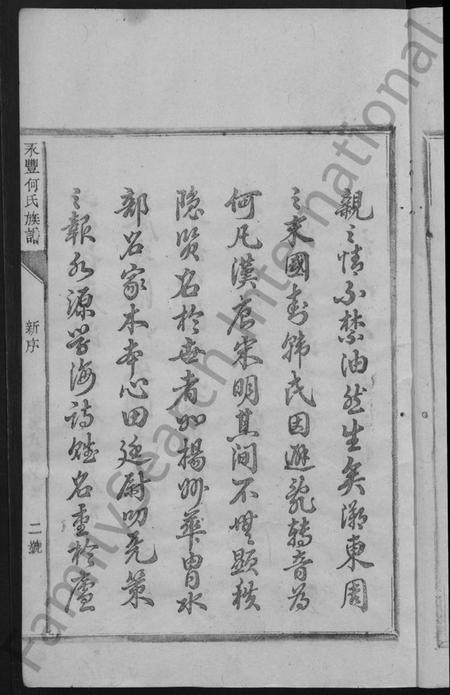 親之情不禁油然生矣溯東周
之末國封韓氏因避亂轉音為
何凡漢唐宋明其间不無顯秩
隐賢名於世者如楊州華胄水
部名家本本心田廷尉叨堯策
之報永源学海詩賦名重於廬
永豐何氏族譜
新序
二號
FamilySearch International